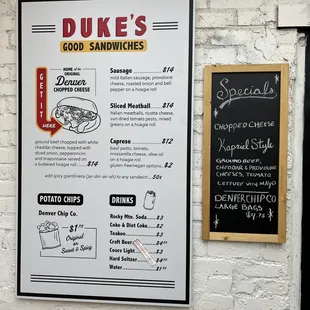 DUKE'S
GOOD SANDWICHES
HOME of the
ORIGINAL
Denver
CHOPPED CHEESE
GET IT
HERE
ground beef chopped with white
cheddar cheese, topped with
diced onion, pepperoncini
and mayonnaise served on
a buttered hoagie roll $14
Sausage $14
mild Italian sausage, provolone
cheese, roasted onion and bell
pepper on a hoagie roll
Sliced Meatball $14
Italian meatballs, ricotta cheese,
sun dried tomato pesto, mixed
greens on a hoagie roll
Caprese $12
basil pesto, tomato,
mozzarella cheese, olive oil
on a hoagie roll
gluten free/vegan options $2
add spicy giardiniera (jar-din-air-ah) to any sandwich 50¢
POTATO CHIPS
Denver Chip Co.
$1.75
Original
or
Sweet & Spicy
DRINKS
Rocky Mtn. Soda $3
Coke & Diet Coke $2
Teakoe $3
Craft Beer
Coors Light $3
Hard Seltzer
Water
Specials
CHOPPED CHEESE
Kaprel Style
GROUND BEEF,
CHEDDAR & PROVOLONE
CHEESES, TOMATO
LETTUCE WITH MAYO
DENVER CHIP CO
LARGE BAGS